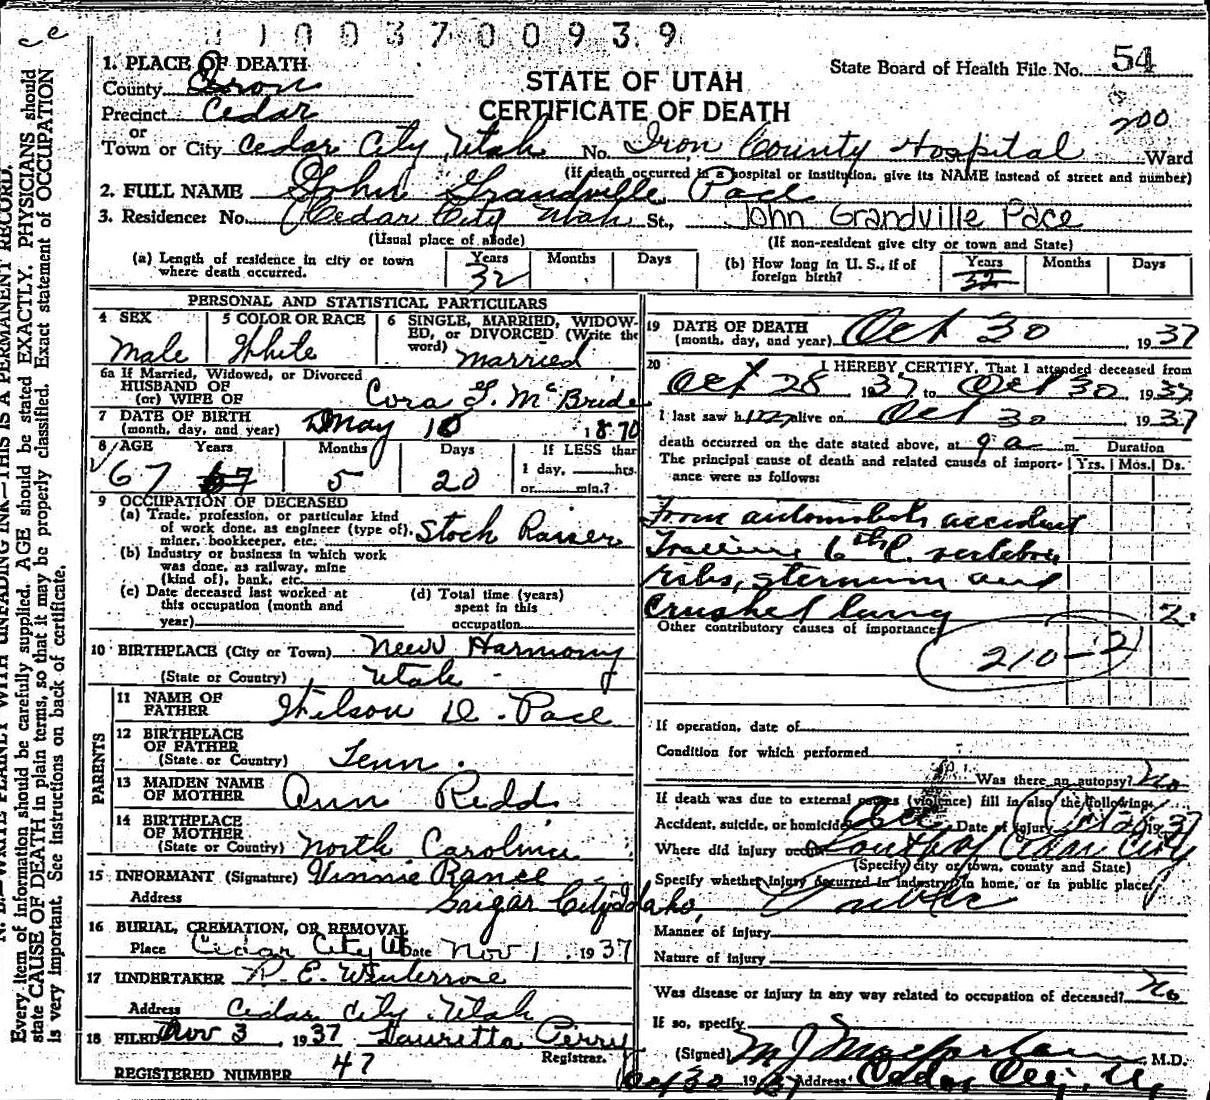 1 1 0 0 3 7 0 0 9 3 9
ce
STATE OF UTAH
CERTIFICATE OF DEATH
State Board of Health File No. 54
200
1. PLACE OF DEATH
County Iron
Precinct Cedar
or
Town or City Cedar City, Utah No. Iron County Hospital Ward
(If death occurred in a hospital or institution, give its NAME instead of street and number)
2. FULL NAME John Grandville Pace
3. Residence: No. Cedar City Utah St., John Grandville Pace
(Usual place of abode) (If non-resident give city or town and State)
(a) Length of residence in city or town where death occurred. Years 32 Months Days
(b) How long in U. S., if of foreign birth? Years 32 Months Days
PERSONAL AND STATISTICAL PARTICULARS
4 SEX Male
5 COLOR OR RACE White
6 SINGLE, MARRIED, WIDOWED, or DIVORCED (Write the word) married
6a If Married, Widowed, or Divorced
HUSBAND OF
(or) WIFE OF Cora F. McBride
7 DATE OF BIRTH
(month, day, and year) May 10 1870
8 AGE Years 67 67 Months 5 Days 20 If LESS than
1 day, hrs.
or min.?
9 OCCUPATION OF DECEASED
(a) Trade, profession, or particular kind
of work done, as engineer (type of),
miner, bookkeeper, etc. Stock Raiser
(b) Industry or business in which work
was done, as railway, mine
(kind of), bank, etc.
(c) Date deceased last worked at
this occupation (month and
year)
(d) Total time (years)
spent in this
occupation
10 BIRTHPLACE (City or Town) New Harmony
(State or Country) Utah
PARENTS
11 NAME OF
FATHER Wilson D. Pace
12 BIRTHPLACE
OF FATHER
(State or Country) Tenn.
13 MAIDEN NAME
OF MOTHER Ann Redd
14 BIRTHPLACE
OF MOTHER
(State or Country) North Carolina
15 INFORMANT (Signature) Vinnie Rance
Address Sugar City Idaho,
16 BURIAL, CREMATION, OR REMOVAL
Place Cedar City Ut Date Nov 1 1937
17 UNDERTAKER R. E. Winterrose
Address Cedar City, Utah
18 FILED Nov 3, 1937 Lauretta Perry
Registrar.
REGISTERED NUMBER 47
19 DATE OF DEATH
(month, day, and year) Oct 30 1937
20 I HEREBY CERTIFY, That I attended deceased from
Oct 28 1937 to Oct 30 1937
I last saw him alive on Oct 30 1937
death occurred on the date stated above, at 9 a m. Duration
The principal cause of death and related causes of importance were as follows: Yrs. Mos. Ds.
From automobile accident
6th C. vertebra
ribs, sternum and
Crushed lung 2
Other contributory causes of importance:
210-2
If operation, date of
Condition for which performed
Was there an autopsy? No
If death was due to external causes (violence) fill in also the following:
Accident, suicide, or homicide Acc Date of injury Oct 28 1937
Where did injury occur South of Cedar City
(Specify city or town, county and State)
Specify whether injury occurred in industry, in home, or in public place
Public
Manner of injury
Nature of injury
Was disease or injury in any way related to occupation of deceased? No
If so, specify
(Signed) M J Macfarlane M.D.
Oct 30 1937 Address Cedar City, U
N. B.—WRITE PLAINLY WITH UNFADING INK—THIS IS A PERMANENT RECORD.
Every item of information should be carefully supplied. AGE should be stated EXACTLY. PHYSICIANS should
state CAUSE OF DEATH in plain terms, so that it may be properly classified. Exact statement of OCCUPATION
is very important. See instructions on back of certificate.